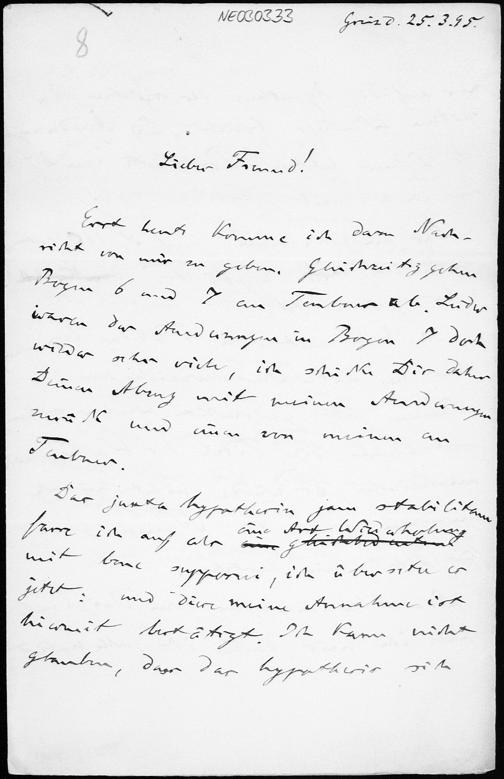 NE030333
8
Gmünd. 25.3.95.
Lieber Freund!
Erst heute komme ich dazu Nach-
richt von mir zu geben. Gleichzeitig gehen
Bogen 6 und 7 an Teubner ab. Leider
waren der Aenderungen in Bogen 7 doch
wieder sehr viele, ich schicke Dir daher
Deinen Abzug mit meinen Aenderungen
zurück und einen von meinen an
Teubner.
Das juxta hypothesin jam stabilitam
fasse ich auf als eine Art Wiederholung
mit bene supposui, ich übersetze es
jetzt: und diese meine Annahme ist
hiermit bestätigt. Ich kann nicht
glauben, dass das hypothesis sich